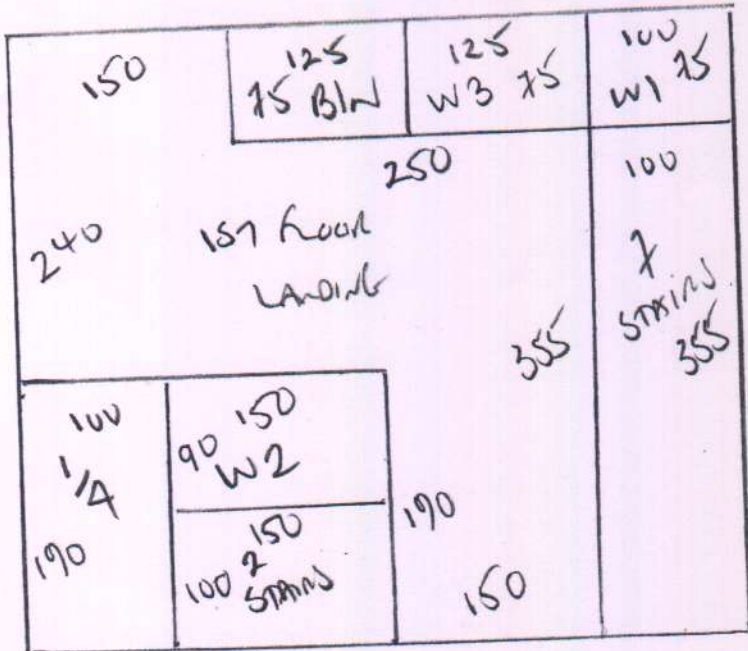 150
125
75 BIN
125
W3 75
100
W1 75
250
100
240
1ST FLOOR
LANDING
7
STAIRS
355
355
100
1/4
190
150
90 W2
150
2
100 STAIRS
190
150